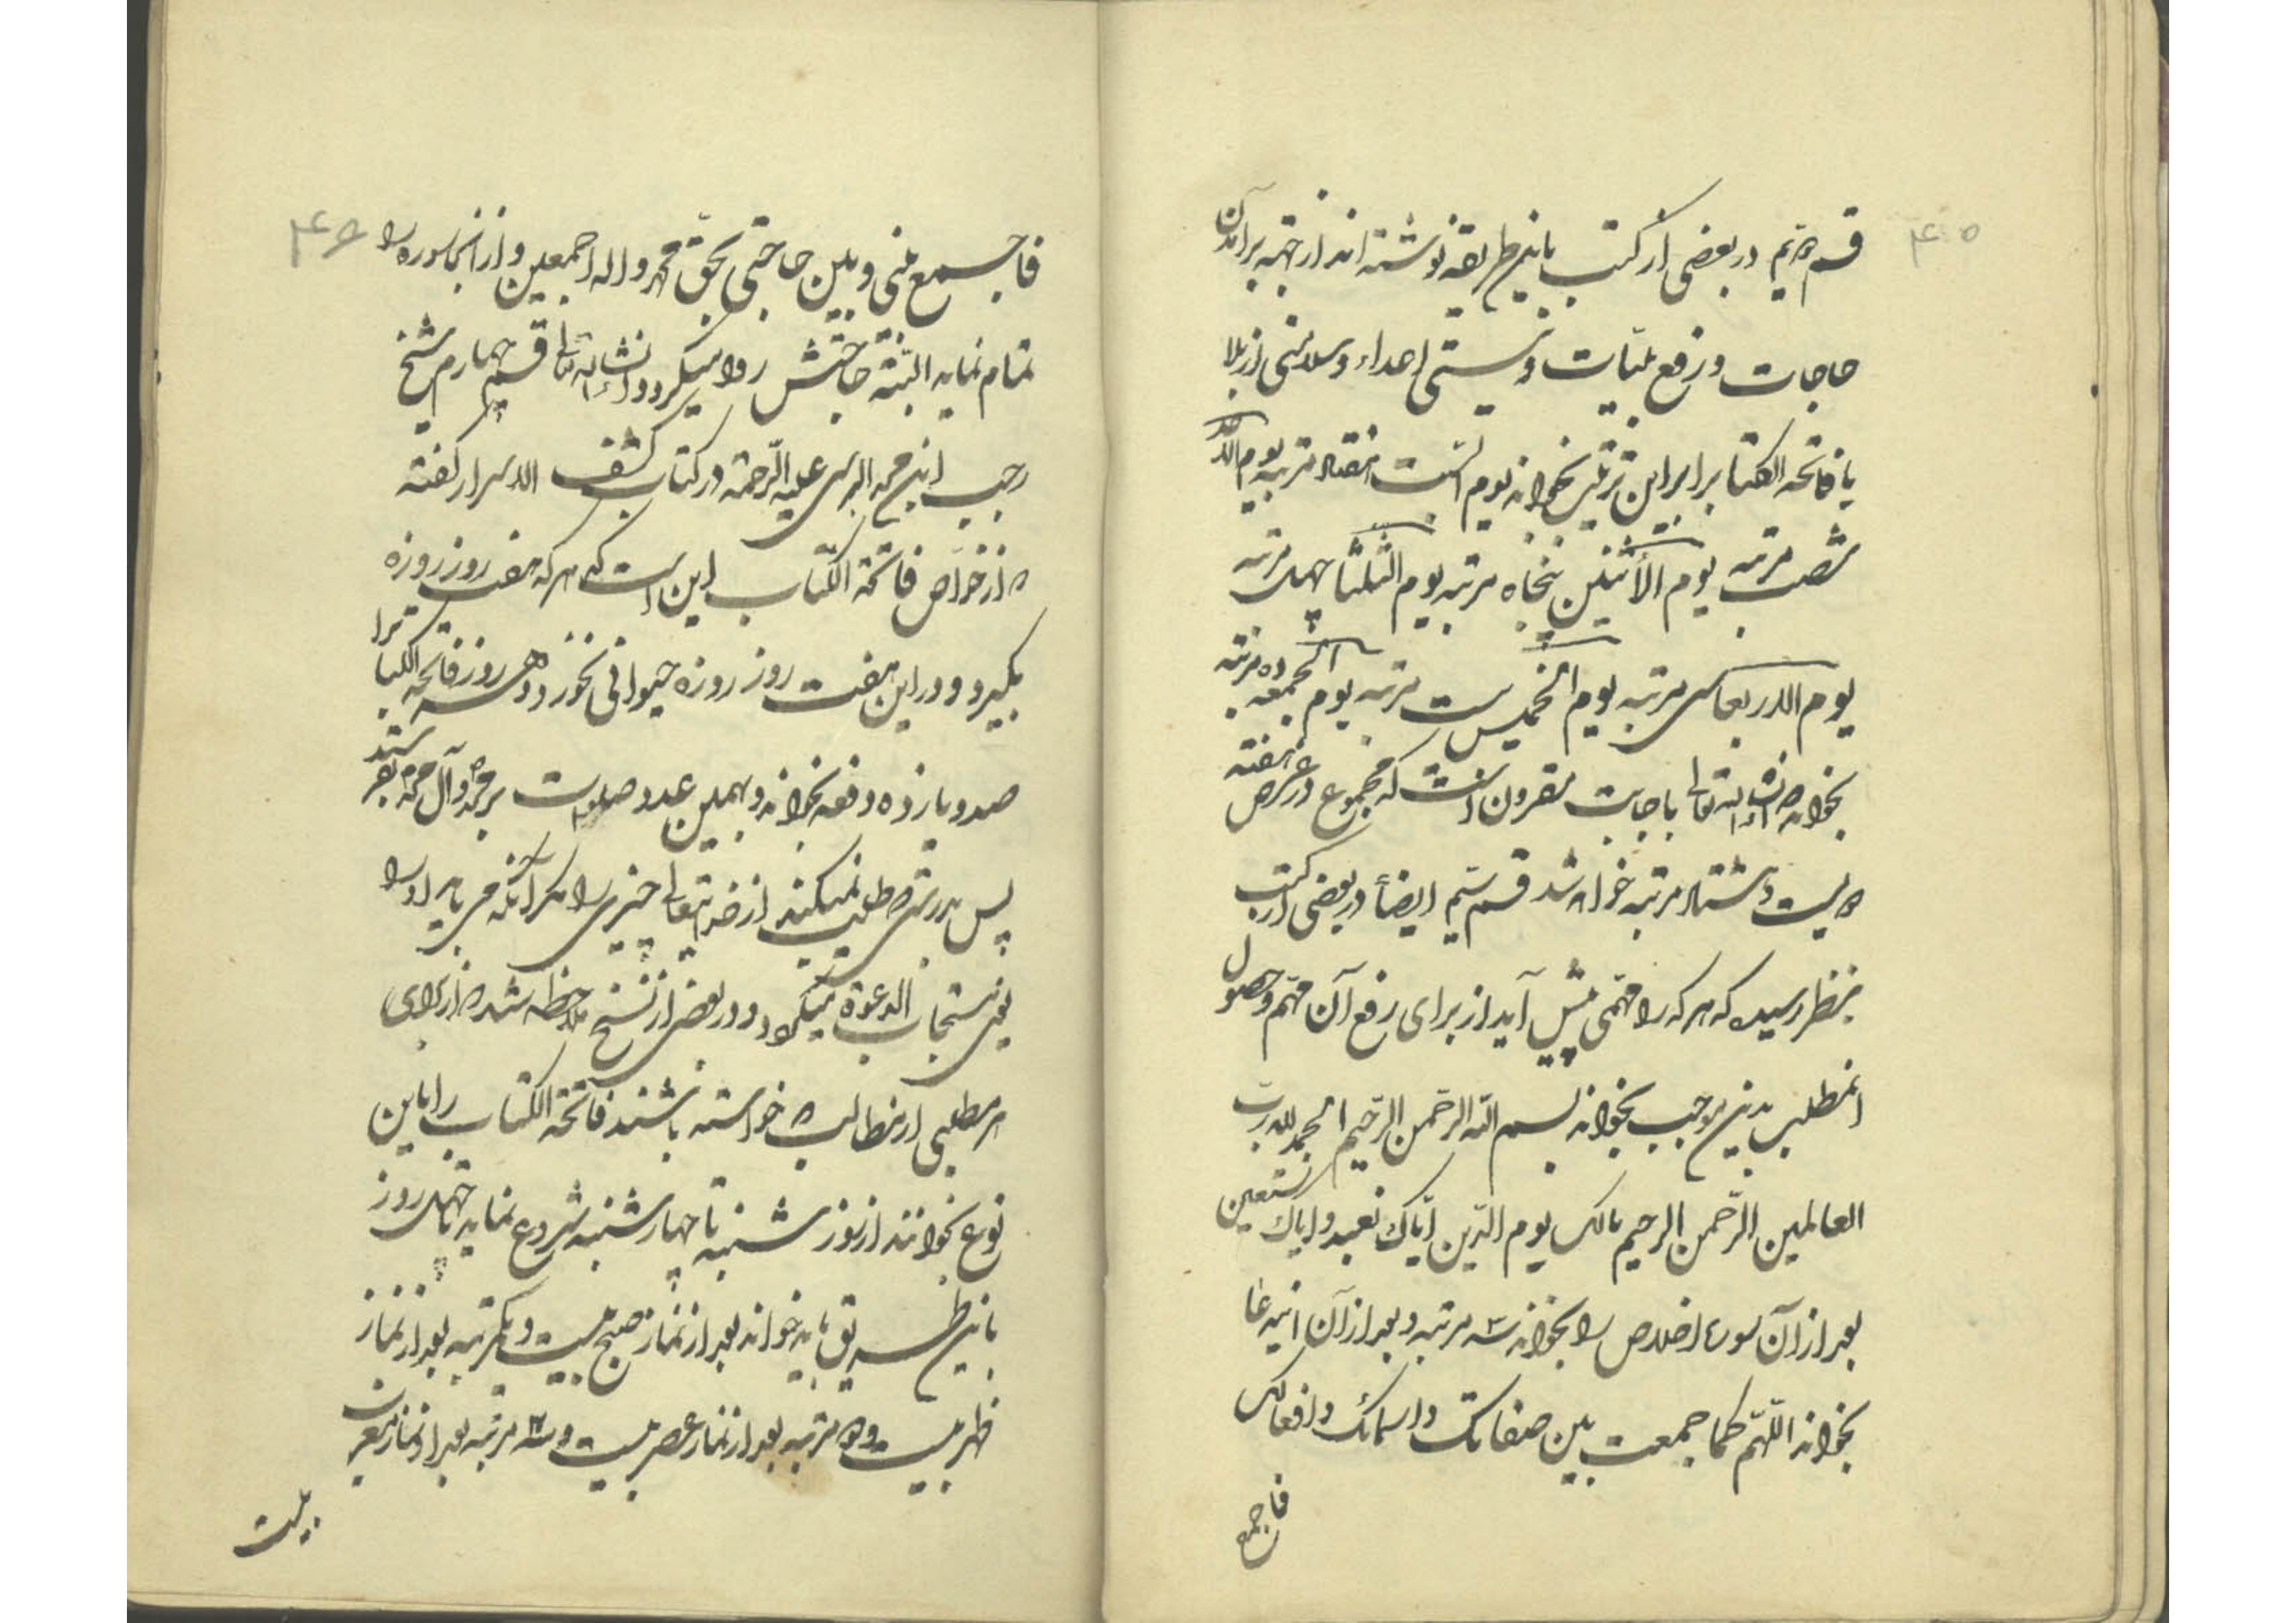 ۴۵
قسم دویم در بعضی از کتب باین طریقه نوشته اند از جهة برآمدن
حاجات و رفع بلیات و نیستی اعداء و سلامتی از بلا
با فاتحه الکتاب را براین ترتیب بخواند یوم السبت هفتاد مرتبه یوم الاحد
شصت مرتبه یوم الأثنین پنجاه مرتبه یوم الثلثا چهل مرتبه
یوم الاربعا سی مرتبه یوم الخمیس بیست مرتبه یوم الجمعه ده مرتبه
بخواند انشاء الله تعالی باجابت مقرون است که مجموع در عرض هفته
دویست و هشتاد مرتبه خواهد شد قسم سیم ایضاً در بعضی از کتب
بنظر رسیده که هر که را مهمی پیش آید از برای رفع آن مهم و حصول
آنمطلب بدین موجب بخواند بسم الله الرحمن الرحیم الحمد لله رب
العالمین الرحمن الرحیم مالک یوم الدین ایاک نعبد و ایاک نستعین
بعد از آن سوره اخلاص را بخواند سه مرتبه و بعد از آن ایندعا
بخواند اللهم کما جمعت بین صفاتک و اسمائک و افعالک
فاجمع
۴۶
فاجمع بینی و بین حاجتی بحق محمد و اله اجمعین و از آنجا سوره را
تمام نماید البته حاجتش روا میگردد انشاء الله تعالی قسم چهارم شیخ
رجب ابن محمد البرسی علیه الرحمة در کتاب کشف الاسرار گفته
که از خواص فاتحة الکتاب این است که هر که هفت روز روزه
بگیرد و در این هفت روز روزه حیوانی نخورد و هر روز فاتحه الکتاب را
صد و یازده دفعه بخواند و بهمین عدد صلوات بر محمد و آل محمد بفرستد
پس بدرستی که طلب نمیکند از خدایتعالی چیزی را مگر آنکه می یابد او را
یعنی مستجاب الدعوة میگردد و در بعضی از نسخ ملاحظه شده که از برای
هر مطلبی از مطالب که خواسته باشند فاتحة الکتاب را باین
نوع بخوانند از روز شنبه تا چهارشنبه شروع نماید تا چهل روز
باین طریق باید خواند بعد از نماز صبح بیست و یکمرتبه بعد از نماز
ظهر بیست و دو مرتبه بعد از نماز عصر بیست و سه مرتبه بعد از نماز مغرب
بیست